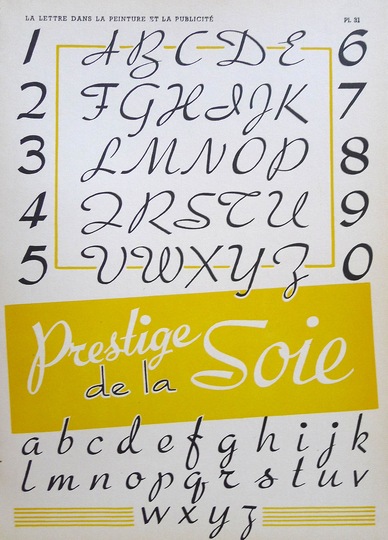 LA LETTRE DANS LA PEINTURE ET LA PUBLICITÉ Pl. 31
1 A B C D E 6
2 F G H I J K 7
3 L M N O P 8
4 Q R S T U 9
5 V W X Y Z 0
Prestige
de la Soie
a b c d e f g h i j k
l m n o p q r s t u v
w x y z